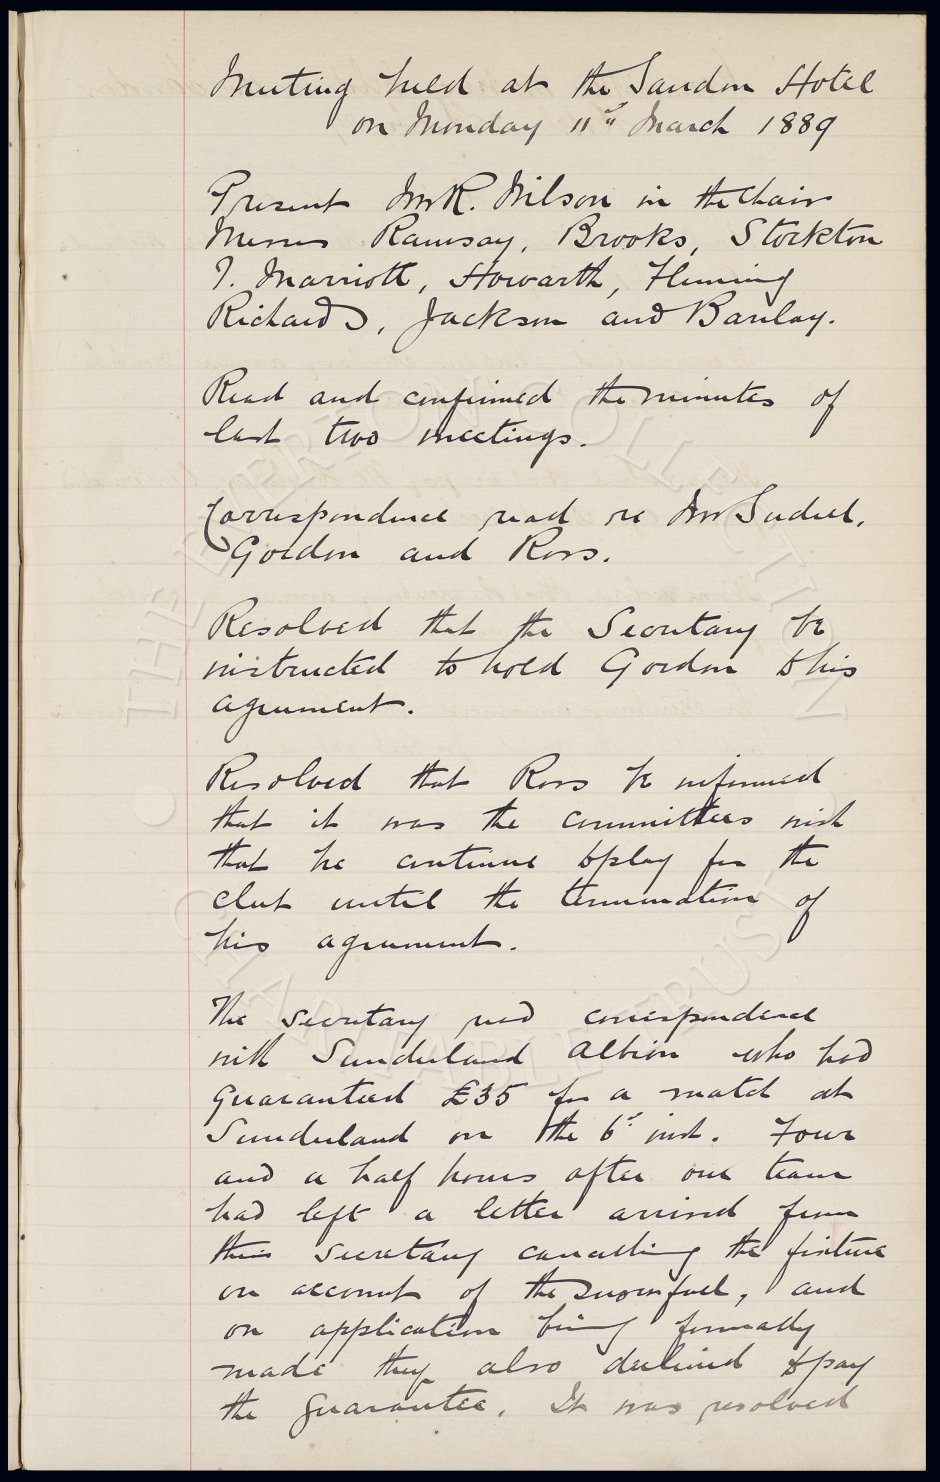 Meeting held at the Sandon Hotel
on Monday 11th March 1889
Present Mr R. Wilson in the Chair
Messrs Ramsay, Brooks, Stockton
J. Marriott, Howarth, Fleming
Richards, Jackson and Barclay.
Read and confirmed the minutes of
last two meetings.
Correspondence read re Mr Sudell,
Gordon and Ross.
Resolved that the Secretary be
instructed to hold Gordon to his
agreement.
Resolved that Ross be informed
that it was the committees wish
that he continue to play for the
club until the termination of
his agreement.
The secretary read correspondence
with Sunderland Albion who had
guaranteed £35 for a match at
Sunderland on the 6th inst. Four
and a half hours after our team
had left a letter arrived from
their secretary cancelling the fixture
on account of the snowfall, and
on application being formally
made they also declined to pay
the guarantee. It was resolved
THE EVERTON COLLECTION
CHARITABLE TRUST